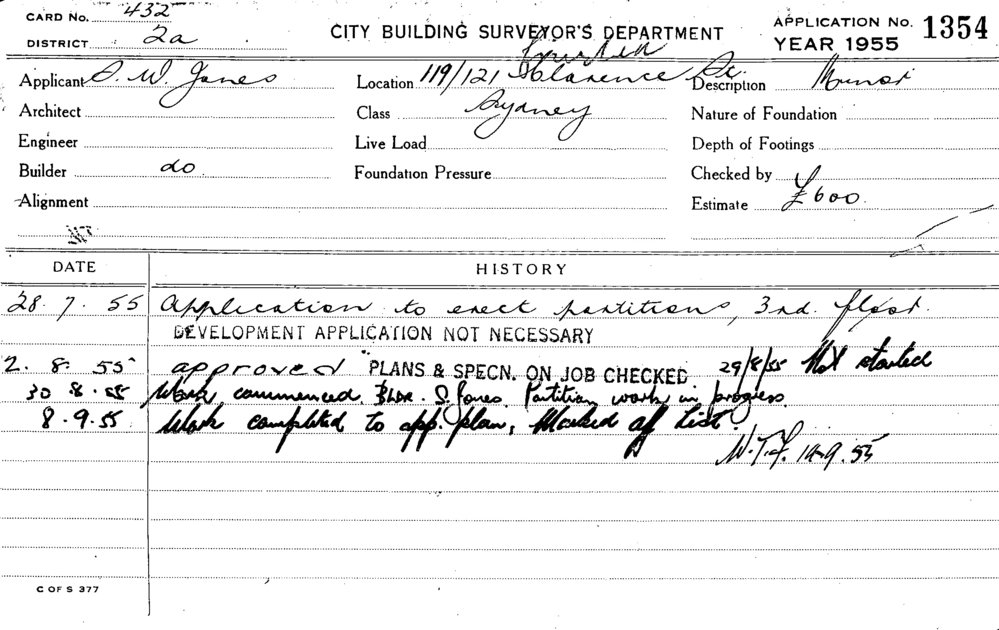 CARD No. 432
DISTRICT 2a
CITY BUILDING SURVEYOR'S DEPARTMENT
APPLICATION No. 1354
YEAR 1955
Applicant S. W. Jones
Location 119/121 Clarence St.
Description Minor
Architect
Class Sydney
Nature of Foundation
Engineer
Live Load
Depth of Footings
Builder do
Foundation Pressure
Checked by
Alignment
Estimate £600
DATE HISTORY
28 7. 55 Application to erect partitions, 3rd. floor.
DEVELOPMENT APPLICATION NOT NECESSARY
2. 8. 55 approved PLANS & SPECN. ON JOB CHECKED 29/8/55 Not started
30 .8.55 Work commenced. Bldr. S. Jones. Partition work in progress.
8.9.55 Work completed to app. plan, Marked off List.
C OF S 377